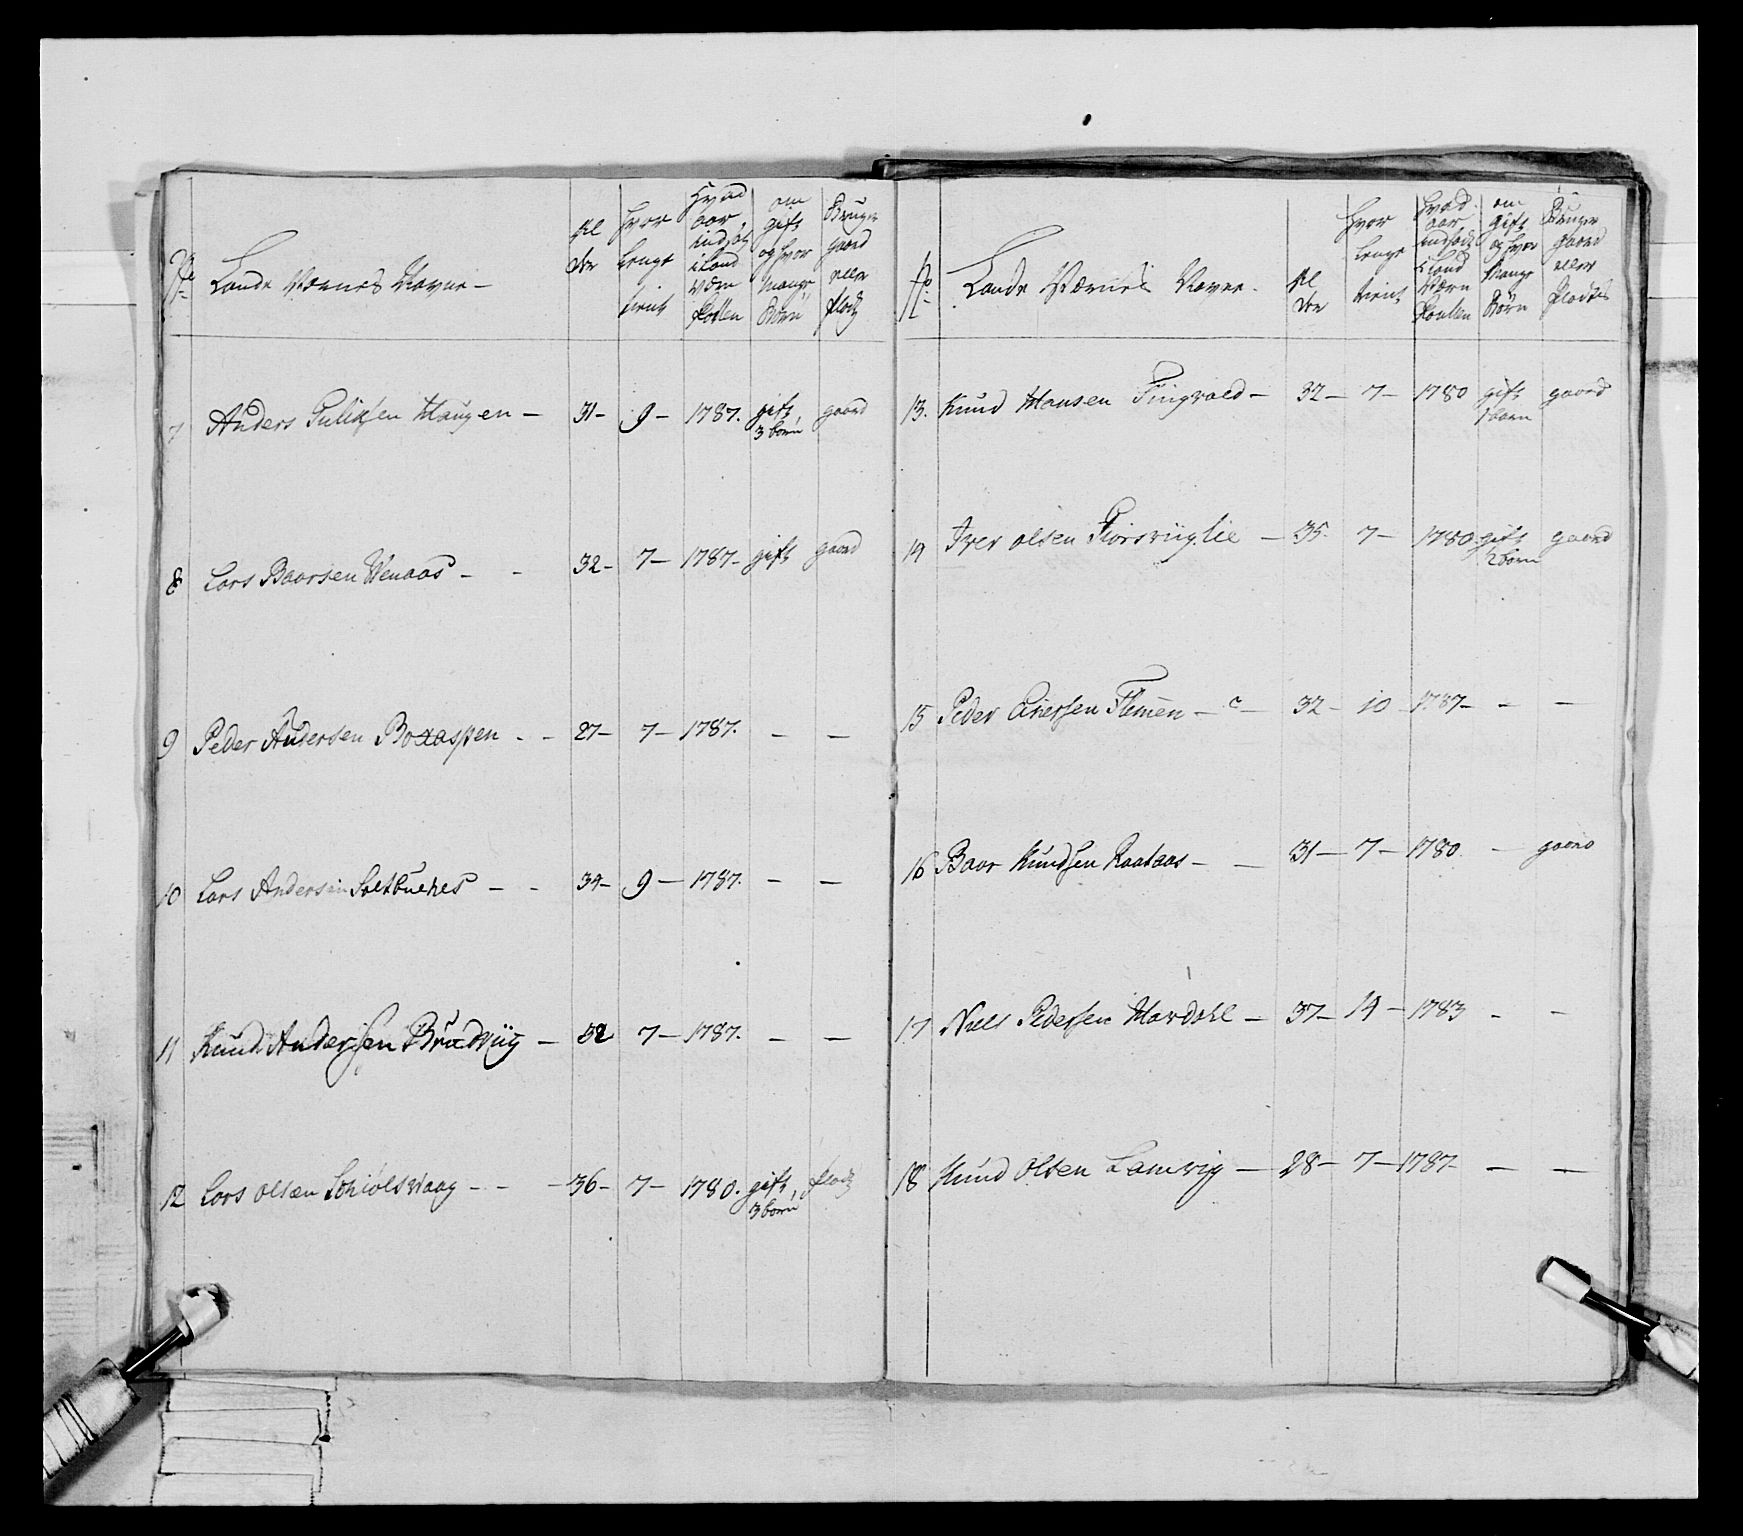 No
Lande Værnes Navne -
Al
der
hvor
lenge
tient
Hvad
aar
indsat
i Land
værn
Rollen
om
gift
og hvor
mange
Børn
Bruger
gaard
eller
pladz
7 Anders Gulichsen Haugen - 31 - 9 - 1787. gift, gaard
3 børn
8 Lars Baarsen Wenaas - - 32 - 7 - 1787 - gift gaard
9 Peder Andersen Boxaspen - - 27 - 7 - 1787. - -
10 Lars Andersen Saltbuehes - - 34 - 9 - 1787. - -
11 Knud Andersen Brudviig - 32 7 - 1787. - -
12 Lars Olsen Schiolsvaag - - - 36 - 7 - 1780. gift, pladz
3 børn
No
Lande Værnes Navne -
Al
der
hvor
lenge
tient
hvad
aar
indsadt
i Land
Værn
Roullen
om
gift
og hvor
mange
Børn
Bruger
gaard
eller
Pladtes
13. Knud Hansen Tingvold - 32 - 7 - 1780 gift gaard
1 barn
14 Iver Olsen Fiorsviiglie - 35 - 7 - 1780. gift gaard
2 børn
15 Peder Ariersen Flemen - - 32 - 10 - 1787 - - -
16 Baar Knudsen Raataas - - 31 - 7 - 1780 - gaard
17 Niels Pedersen Mardahl - 37 - 14 - 1783 - -
18 Knud Olsen Lamvig - 28 - 7 - 1787 - - -